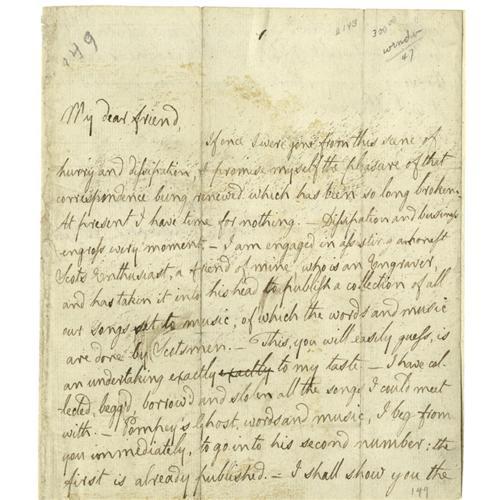 149
a 143
300.00
wends
47
My dear friend,
If once I were gone from this scene of
hurry and dissipation, I promise myself the pleasure of that
correspondence being renewed which has been so long broken.
At present I have time for nothing. – Dissipation and business
engross every moment. – I am engaged in assisting an honest
Scots Enthusiast, a friend of mine, who is an Engraver,
and has taken it into his head to publish a collection of all
our songs set to music, of which the words and music
are done by Scotsmen. – This, you will easily guess, is
an undertaking exactly exactly to my taste – I have col-
lected, begg'd, borrow'd and stolen all the songs I could meet
with. – Pompey's Ghost, words and music, I beg from
you immediately, to go into his second number: the
first is already published. – I shall show you the
149